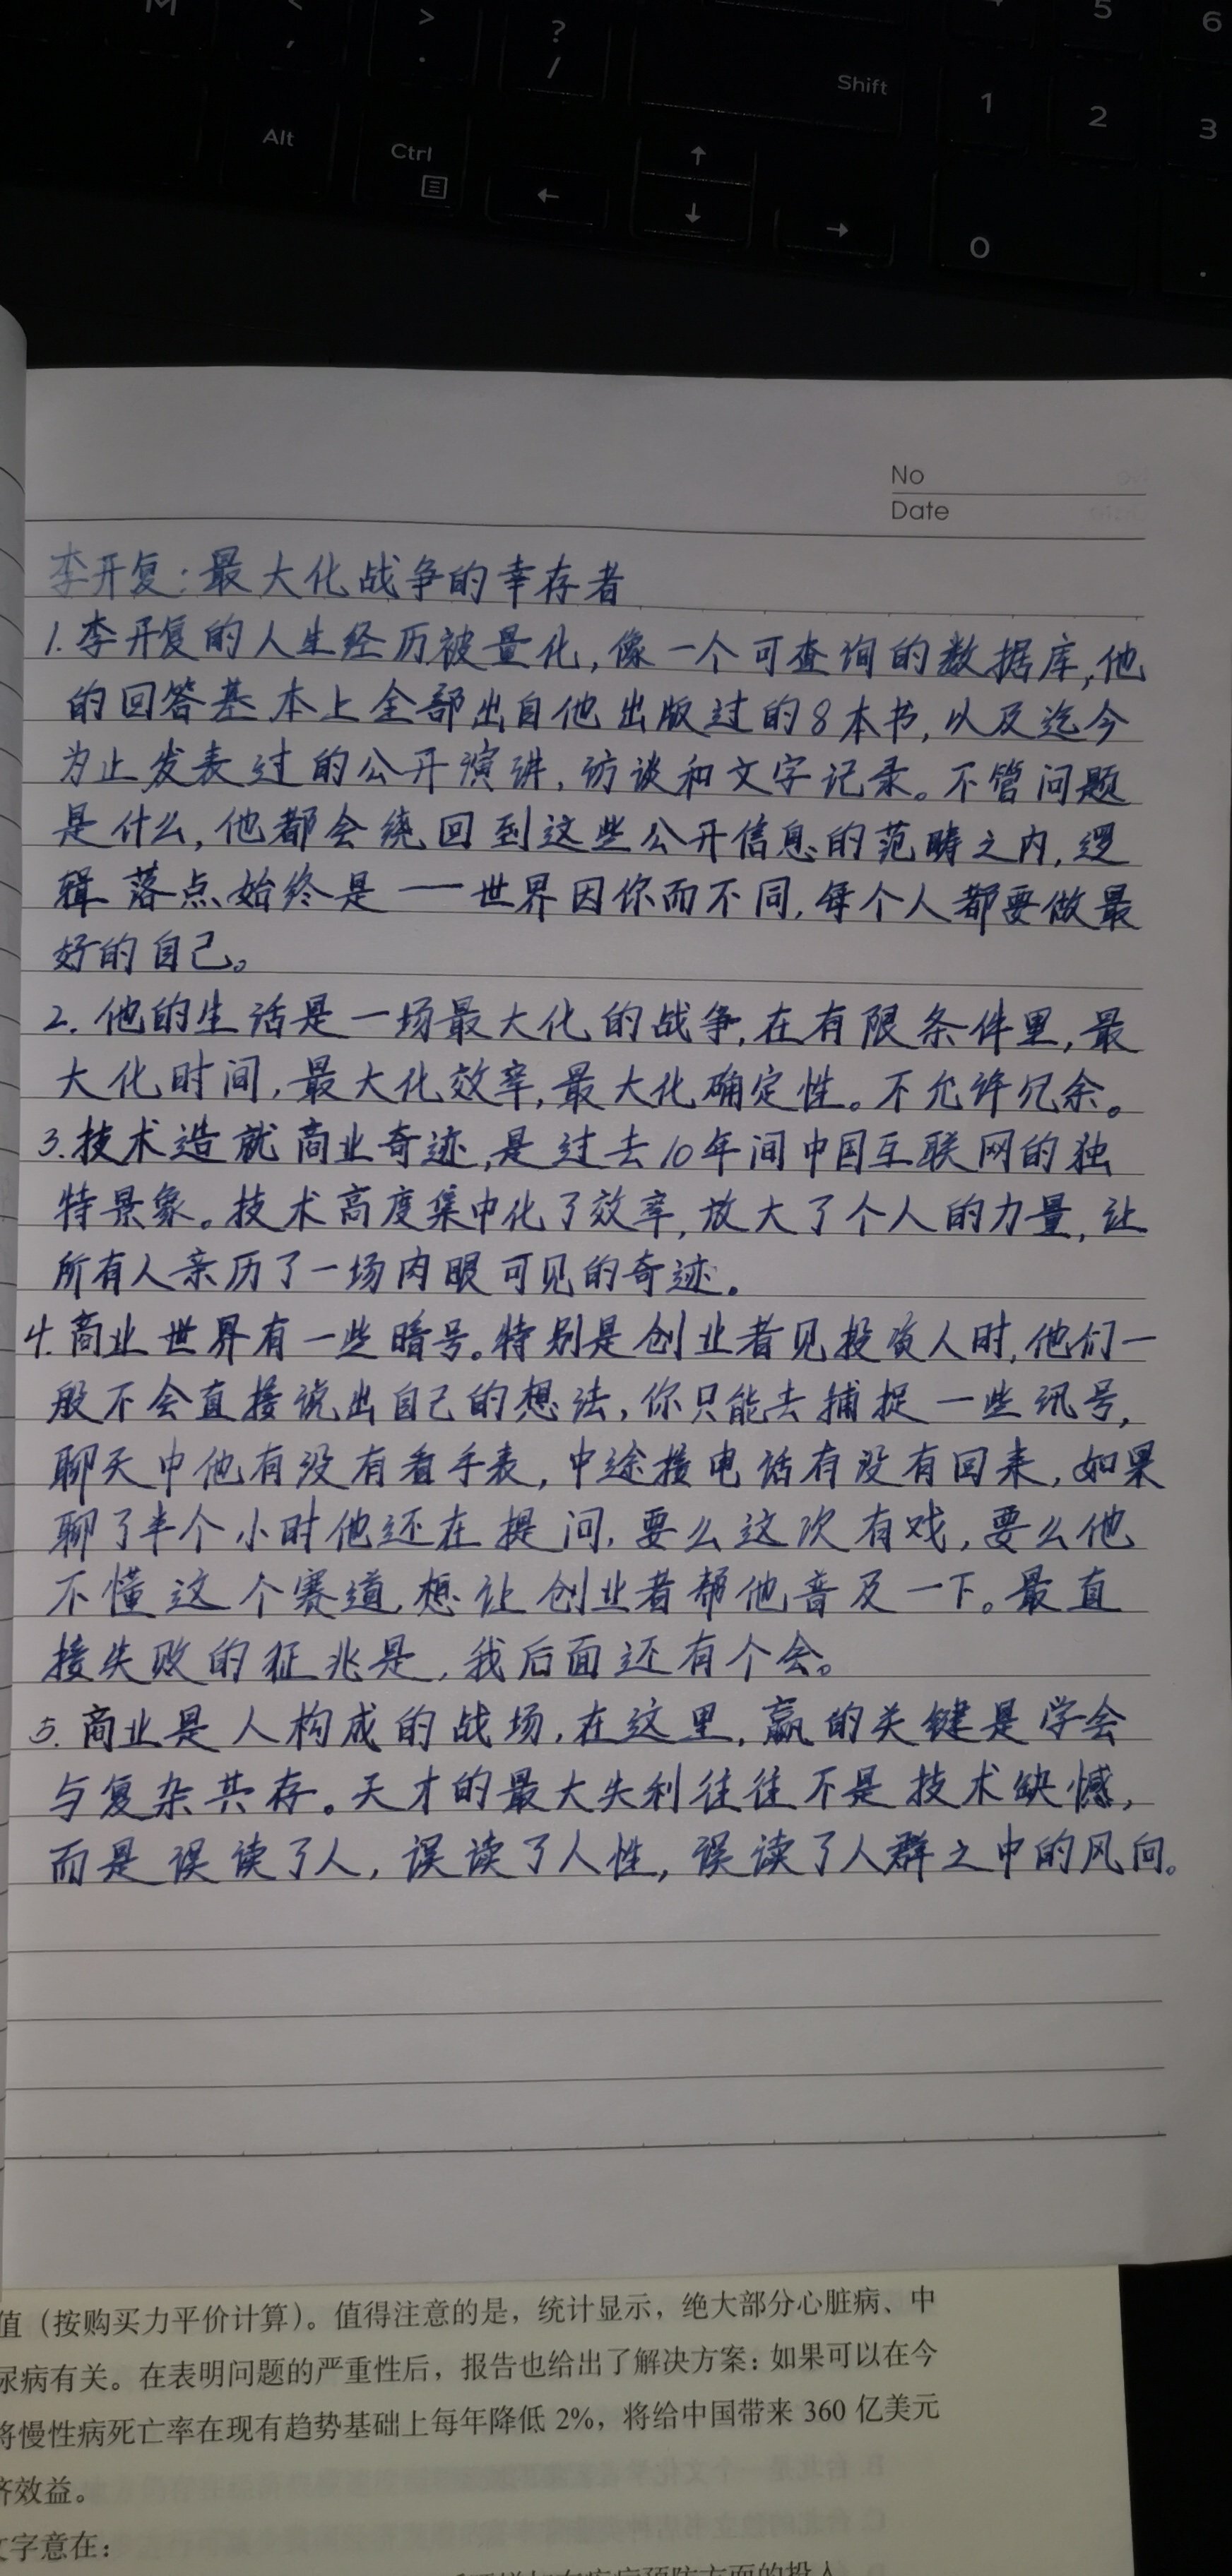 M < > ? 5 6
, . / Shift 1 2 3
Alt Ctrl ↑
← ↓ → 0 .
No
Date
李开复:最大化战争的幸存者
1.李开复的人生经历被量化,像一个可查询的数据库,他
的回答基本上全部出自他出版过的8本书,以及迄今
为止发表过的公开演讲,访谈和文字记录。不管问题
是什么,他都会绕回到这些公开信息的范畴之内,逻
辑落点始终是——世界因你而不同,每个人都要做最
好的自己。
2.他的生活是一场最大化的战争,在有限条件里,最
大化时间,最大化效率,最大化确定性。不允许冗余。
3.技术造就商业奇迹,是过去10年间中国互联网的独
特景象。技术高度集中化了效率,放大了个人的力量,让
所有人亲历了一场肉眼可见的奇迹。
4.商业世界有一些暗号。特别是创业者见投资人时,他们一
般不会直接说出自己的想法,你只能去捕捉一些讯号,
聊天中他有没有看手表,中途接电话有没有回来,如果
聊了半个小时他还在提问,要么这次有戏,要么他
不懂这个赛道,想让创业者帮他普及一下。最直
接失败的征兆是,我后面还有个会。
5.商业是人构成的战场,在这里,赢的关键是学会
与复杂共存。天才的最大失利往往不是技术缺憾,
而是误读了人,误读了人性,误读了人群之中的风向。
值(按购买力平价计算)。值得注意的是,统计显示,绝大部分心脏病、中
尿病有关。在表明问题的严重性后,报告也给出了解决方案:如果可以在今
将慢性病死亡率在现有趋势基础上每年降低 2%,将给中国带来 360 亿美元
济效益。
文字意在: